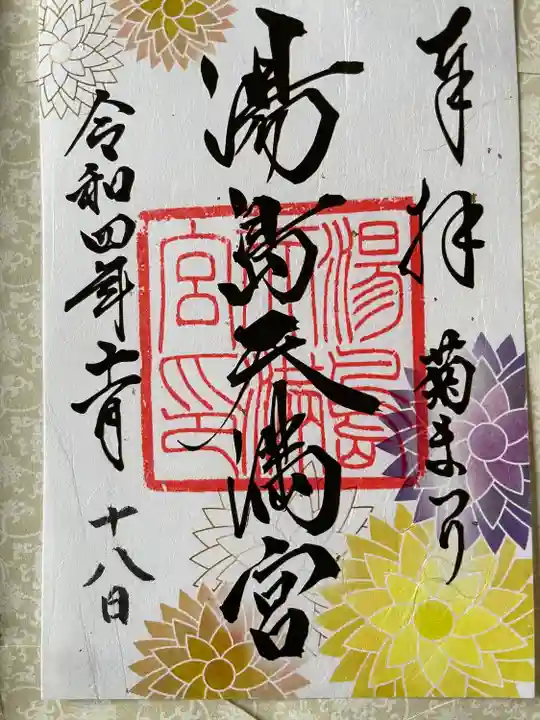 奉拝 菊まつり
湯島天満宮
令和四年十一月十八日
湯島天満宮印